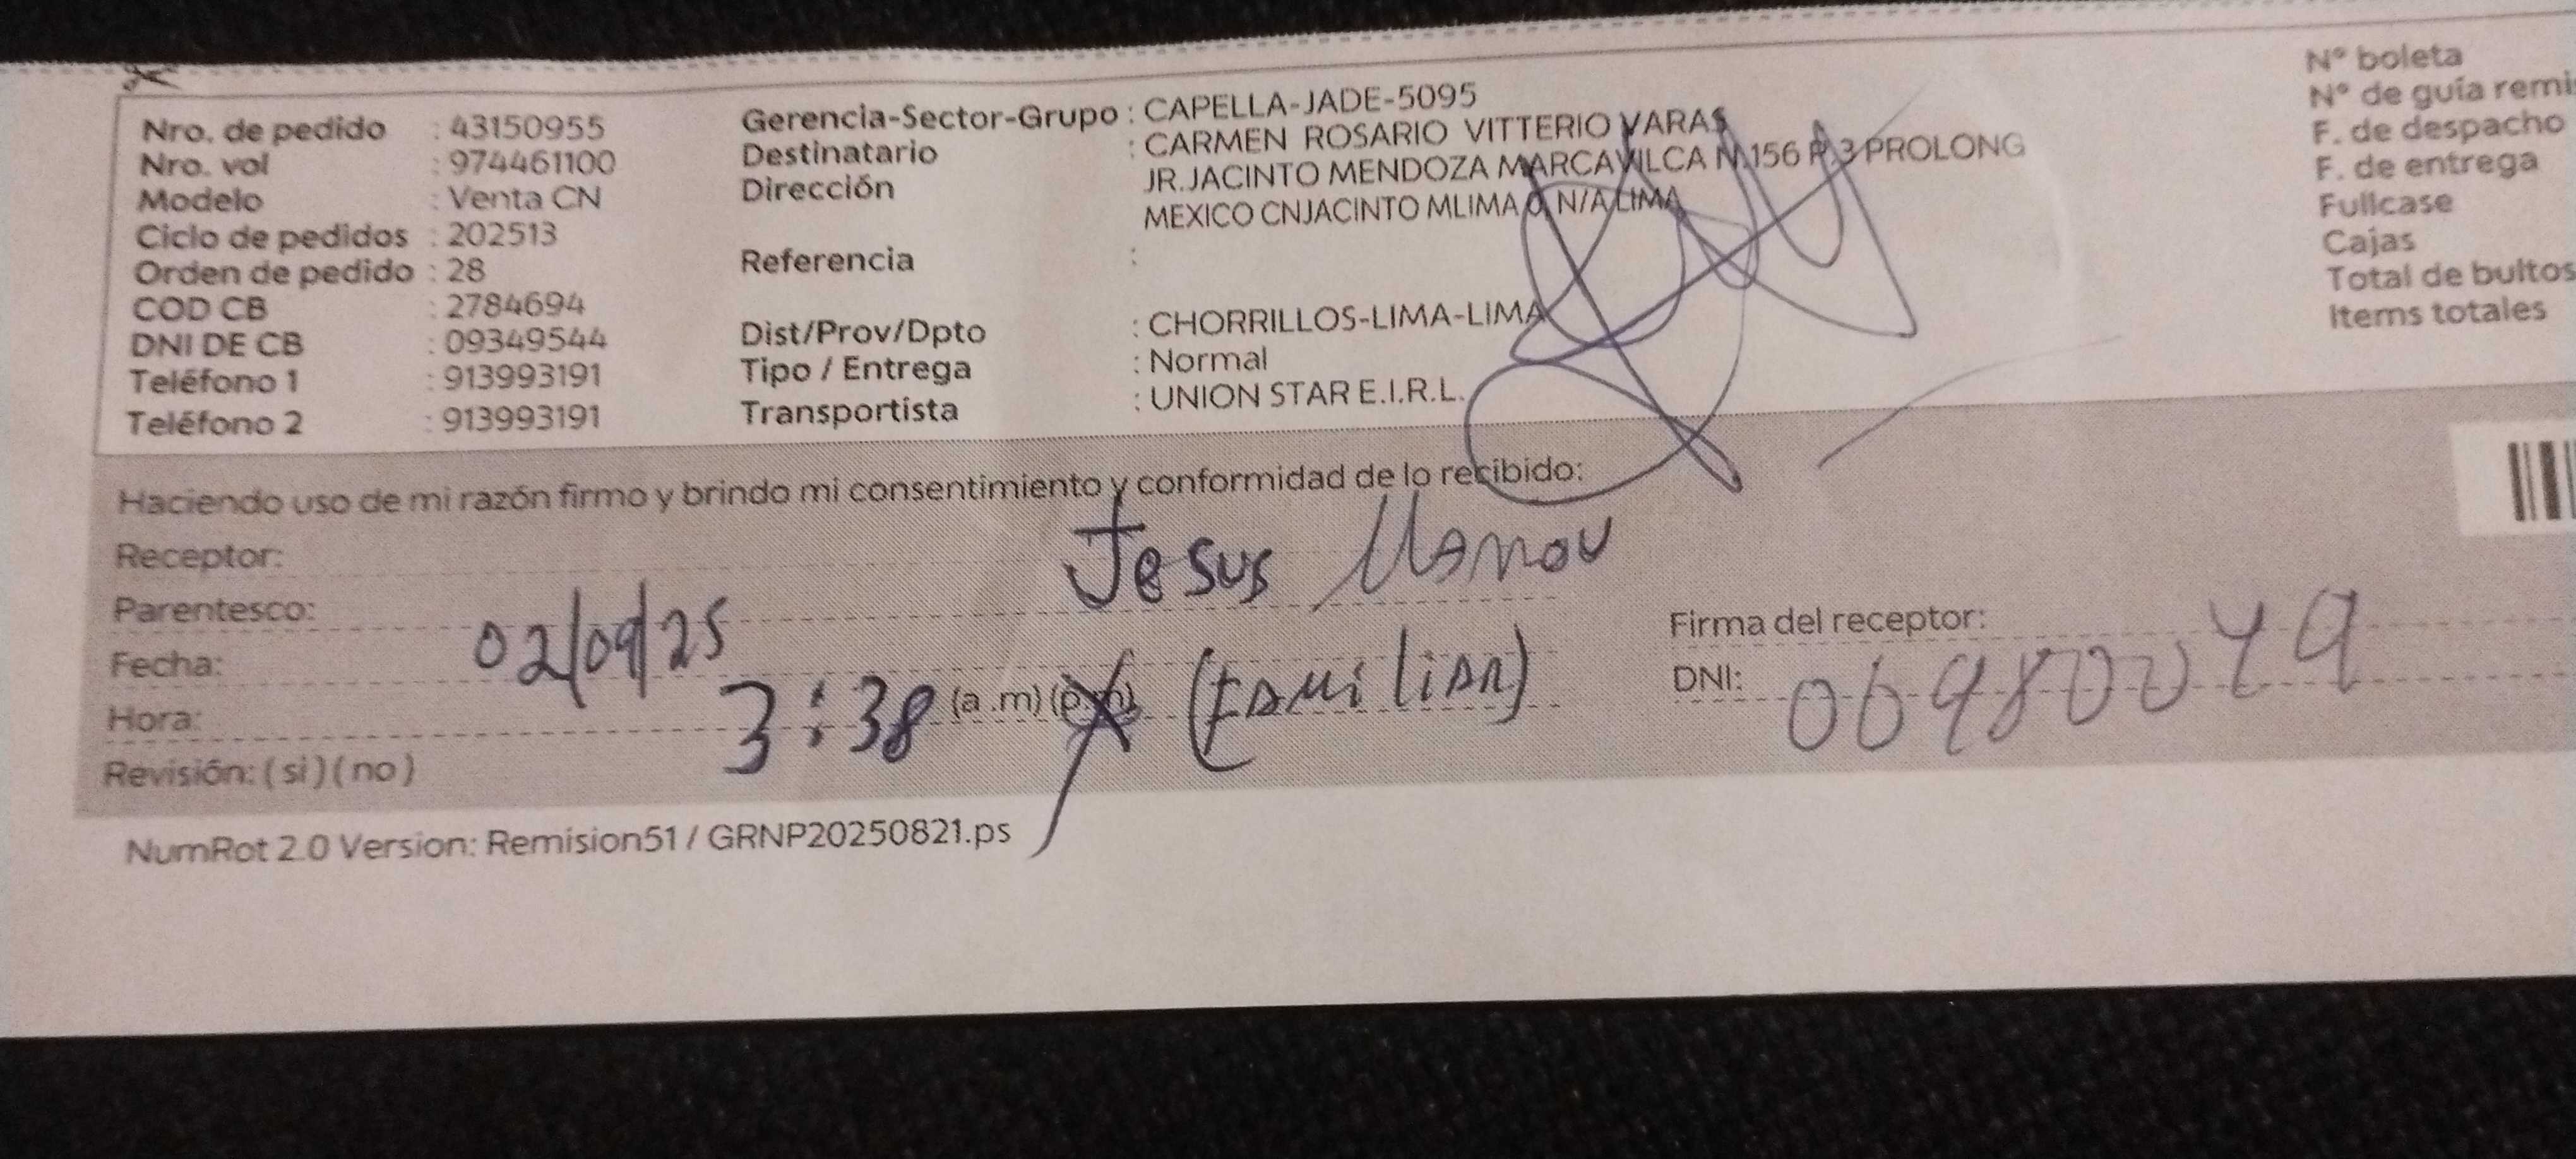 Nro. de pedido : 43150955
Nro. vol : 974461100
Modelo : Venta CN
Ciclo de pedidos : 202513
Orden de pedido : 28
COD CB : 2784694
DNI DE CB : 09349544
Teléfono 1 : 913993191
Teléfono 2 : 913993191
Gerencia-Sector-Grupo : CAPELLA-JADE-5095
Destinatario : CARMEN ROSARIO VITTERIO VARAS
Dirección JR.JACINTO MENDOZA MARCAVILCA N.156 P.3 PROLONG
MEXICO CNJACINTO MLIMA 0, N/A LIMA
Referencia :
Dist/Prov/Dpto : CHORRILLOS-LIMA-LIMA
Tipo / Entrega : Normal
Transportista : UNION STAR E.I.R.L.
N° boleta
N° de guía remi
F. de despacho
F. de entrega
Fullcase
Cajas
Total de bultos
Items totales
Haciendo uso de mi razón firmo y brindo mi consentimiento y conformidad de lo recibido:
Receptor: Jesus
Parentesco:
Fecha: 02/09/25
Hora: 3:38 (a .m) (p.m) (FAMiliAR)
Revisión: ( si ) ( no )
Firma del receptor:
DNI:
NumRot 2.0 Version: Remision51 / GRNP20250821.ps